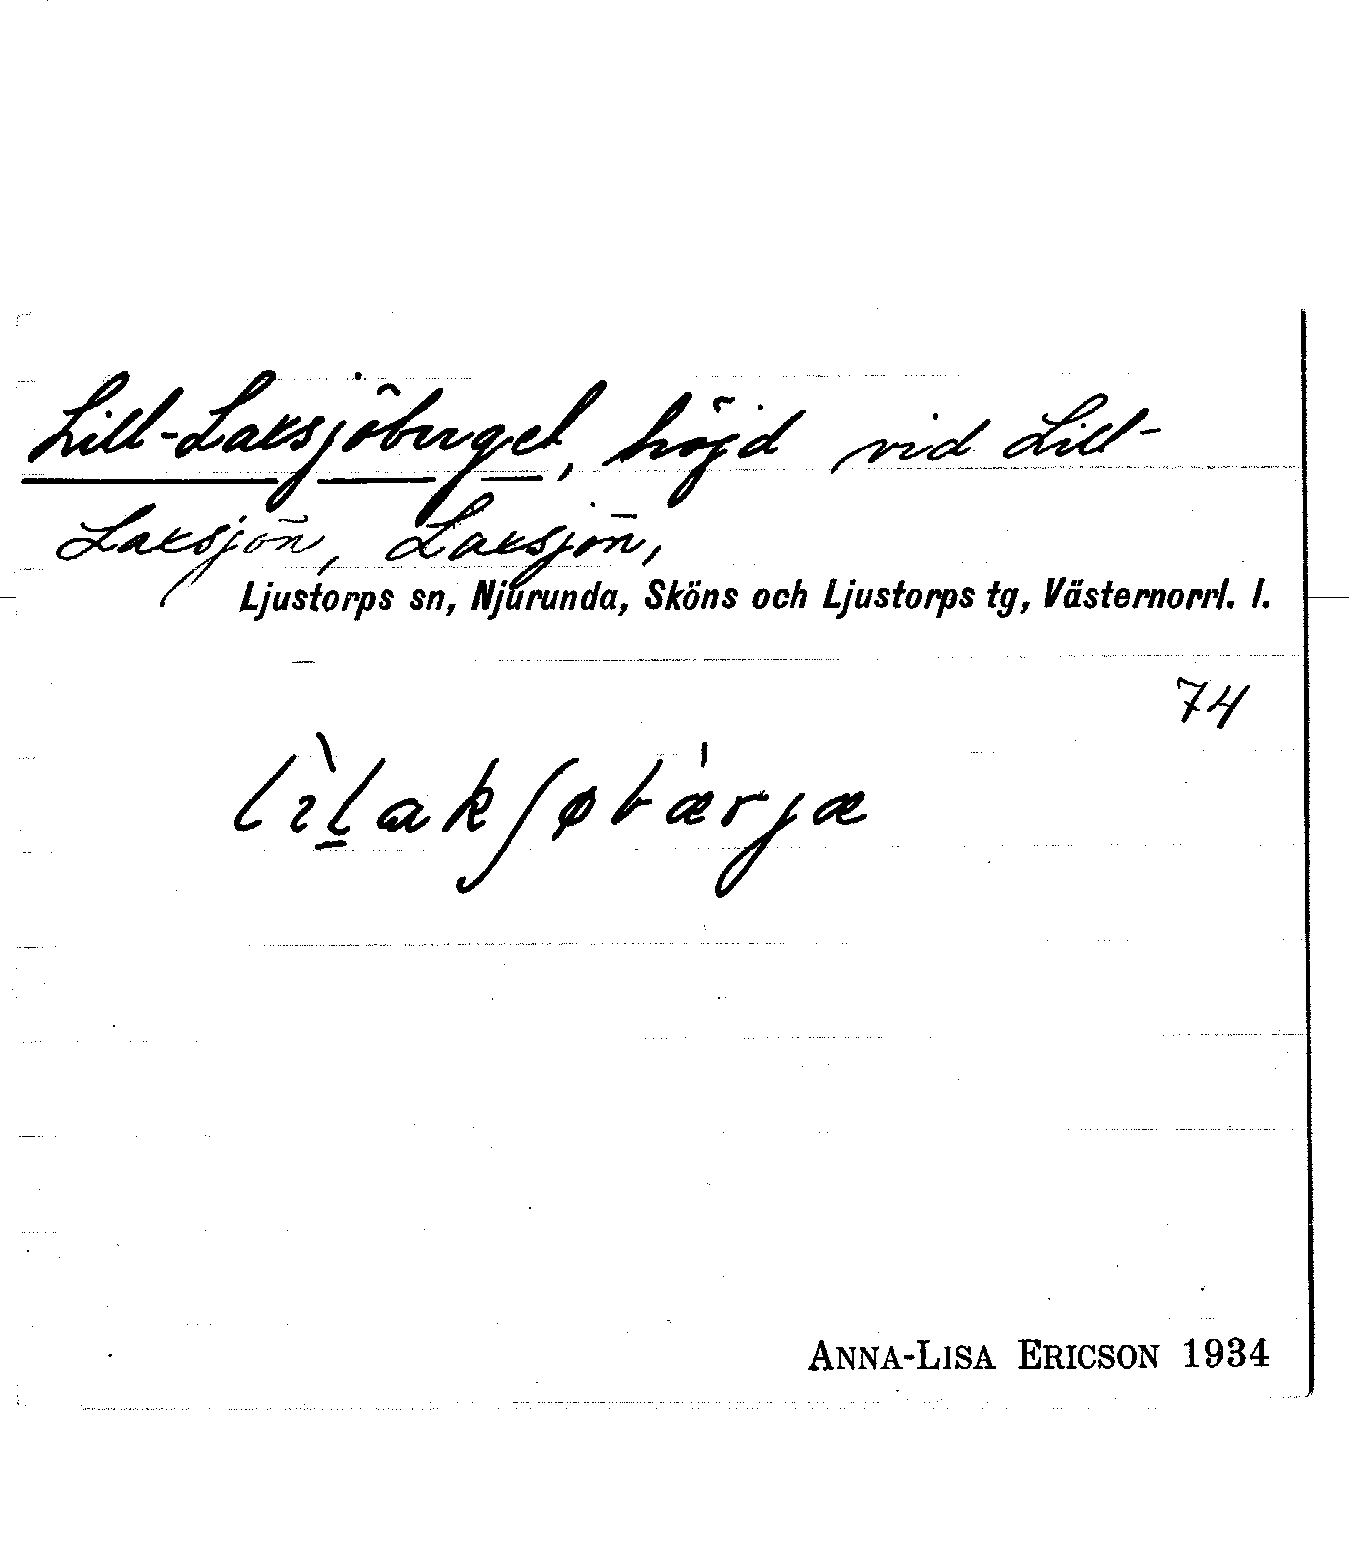 Lill-Laksjöberget, höjd vid Lill-
Laksjön, Laksjön,
Ljustorps sn, Njurunda, Sköns och Ljustorps tg, Västernorrl. l.
74
lìl̠akʃøbá̍rjæ
ANNA-LISA ERICSON 1934